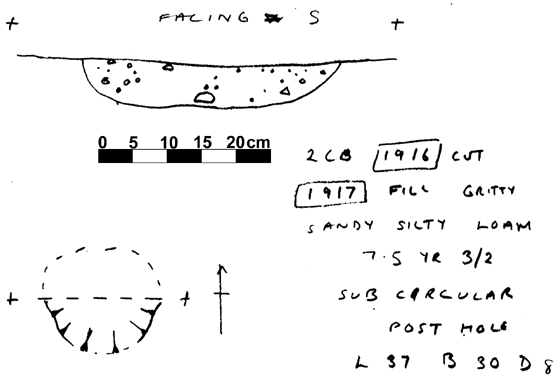 FACING S
0 5 10 15 20cm
2CB 1916 CUT
1917 FILL GRITTY
SANDY SILTY LOAM
7.5 YR 3/2
SUB CIRCULAR
POST HOLE
L 37 B 30 D 8